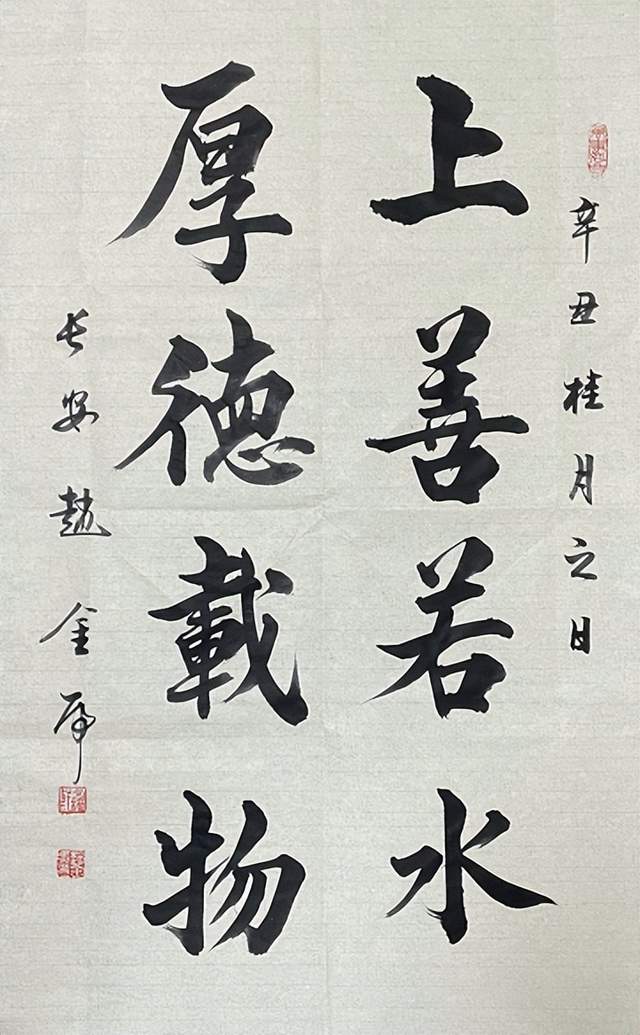 辛丑桂月之日
上善若水
厚德載物
长安趙金虎